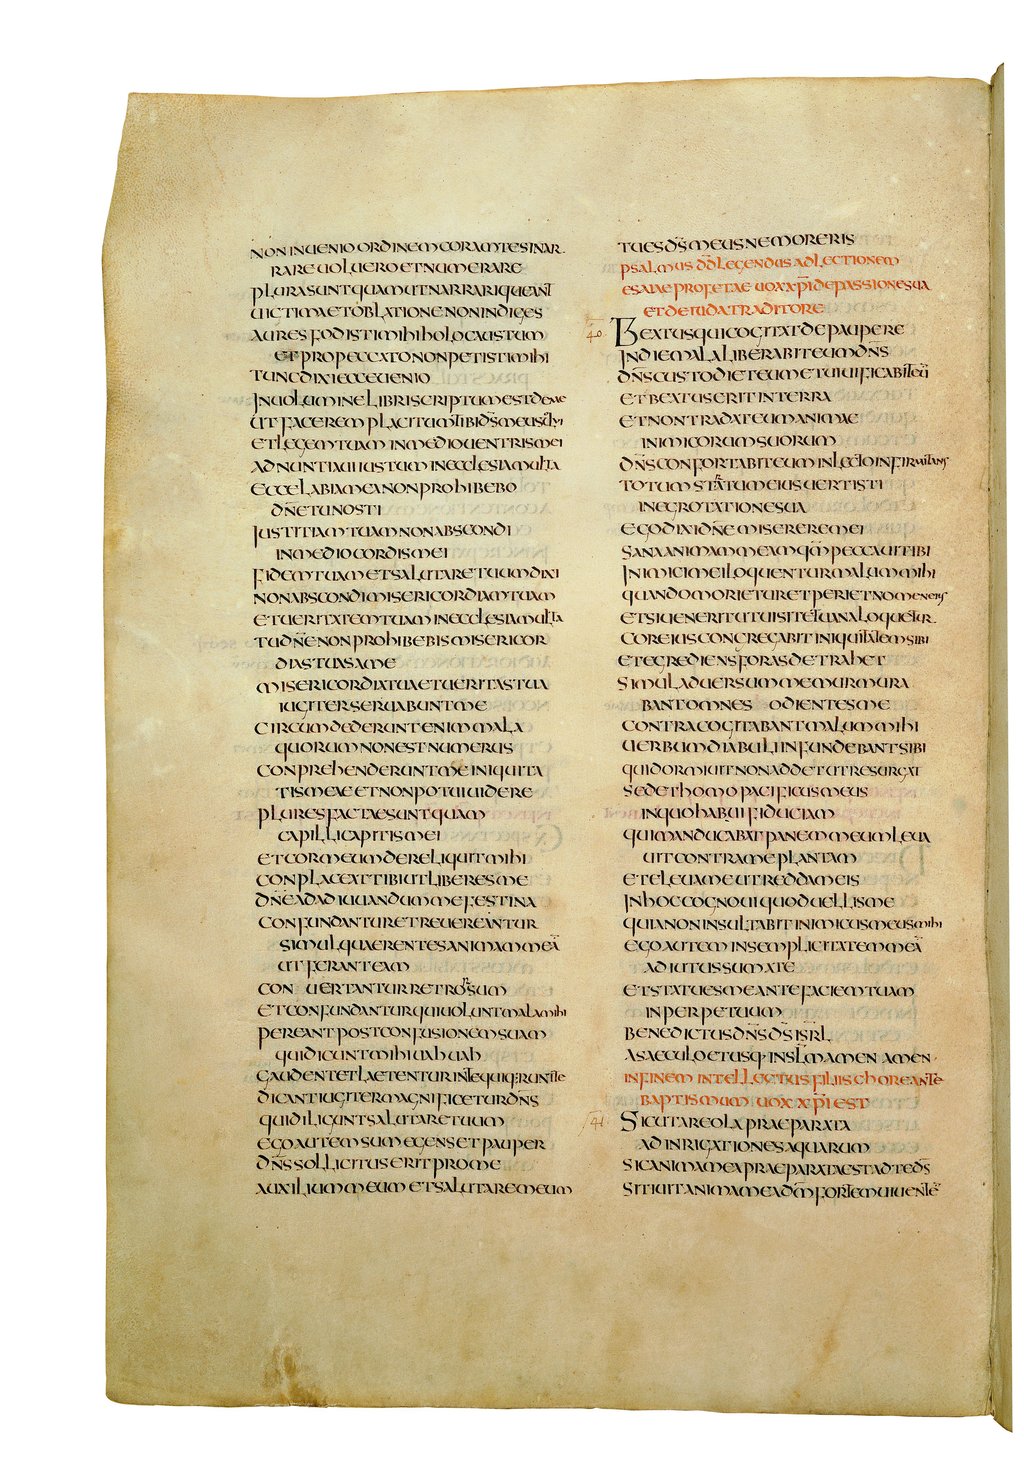 NON INUENIO ORDINEM CORAM TE SI NAR
RARE UOLUERO ET NUMERARE
PLURA SUNT QUAM UT NARRARI QUEANT
UICTIMA ET OBLATIONE NON INDIGES
AURES FODISTI MIHI HOLOCAUSTUM
ET PRO PECCATO NON PETISTI MIHI
TUNC DIXI ECCE UENIO
IN UOLUMINE LIBRI SCRIPTUM EST DE ME
UT FACEREM PLACITUM TIBI DS MEUS UOLUI
ET LEGEM TUAM IN MEDIO UENTRIS MEI
ADNUNTIAUI IUSTUM IN ECCLESIA MULTA
ECCE LABIA MEA NON PROHIBEBO
DNE TU NOSTI
IUSTITIAM TUAM NON ABSCONDI
IN MEDIO CORDIS MEI
FIDEM TUAM ET SALUTARE TUUM DIXI
NON ABSCONDI MISERICORDIAM TUAM
ET UERITATEM TUAM IN ECCLESIA MULTA
TU DNE NON PROHIBEBIS MISERICOR
DIAS TUAS A ME
MISERICORDIA TUA ET UERITAS TUA
IUGITER SERUABUNT ME
CIRCUMDEDERUNT ENIM MALA
QUORUM NON EST NUMERUS
CONPREHENDERUNT ME INIQUITA
TIS MEAE ET NON POTUI UIDERE
PLURES FACTAE SUNT QUAM
CAPILLI CAPITIS MEI
ET COR MEUM DERELIQUIT MIHI
CONPLACEAT TIBI UT LIBERES ME
DNE AD ADIUUANDUM ME FESTINA
CONFUNDANTUR ET REUEREANTUR
SIMUL QUAERENTES ANIMAM MEA
UT FERANT EAM
CONUERTANTUR RETRORSUM
ET CONFUNDANTUR QUI UOLUNT MALA MIHI
PEREANT POST CONFUSIONEM SUAM
QUI DICUNT MIHI UAH UAH
GAUDENT ET LAETENTUR IN TE QUI QUERUNT TE
DICANT IUGITER MAGNIFICETUR DNS
QUI DILIGUNT SALUTARE TUUM
EGO AUTEM SUM EGENS ET PAUPER
DNS SOLLICITUS ERIT PRO ME
AUXILIUM MEUM ET SALUTARE MEUM
TU ES DS MEUS NE MORERIS
PSALMUS DD LEGENDUS AD LECTIONEM
ESAIAE PROFETAE UOX XPI DE PASSIONE SUA
ET DE IUDA TRADITORE
40 BEATUS QUI COGITAT DE PAUPERE
IN DIE MALA LIBERABIT EUM DNS
DNS CUSTODIET EUM ET UIUIFICABIT EU
ET BEATUS ERIT IN TERRA
ET NON TRADAT EUM ANIMAE
INIMICORUM SUORUM
DNS CONFORTABIT EUM IN LECTO INFIRMITATIS
TOTUM STRATUM EIUS UERTISTI
IN EGROTATIONE SUA
EGO DIXI DNE MISERERE MEI
SANA ANIMAM MEAM QM PECCAUI TIBI
INIMICI MEI LOQUENTUR MALUM MIHI
QUANDO MORIETUR ET PERIET NOMEN EIUS
ET SI UENERIT UT UISITET UANA LOQUETUR
COR EIUS CONGREGABIT INIQUITATEM SIBI
ET EGREDIENS FORAS DETRAHET
SIMUL ADUERSUM ME MURMURA
BANT OMNES ODIENTES ME
CONTRA COGITABANT MALUM MIHI
UERBUM DIABULI INFUNDEBANT SIBI
QUI DORMIUIT NON ADDET UT RESURGAT
SED ET HOMO PACIFICUS MEUS
IN QUO HABUI FIDUCIAM
QUI MANDUCABAT PANEM MEUM LEUA
UIT CONTRA ME PLANTAM
ET ELEUA ME UT REDDAM EIS
IN HOC COGNOUI QUOD UELLIS ME
QUIA NON INSULTABIT INIMICUS MEUS MIHI
EGO AUTEM IN SEMPLICITATEM MEA
ADIUTUS SUM A TE
ET STATUES ME ANTE FACIEM TUAM
IN PERPETUUM
BENEDICTUS DNS DS ISRL
A SAECULO ET USQ· IN SLM AMEN AMEN·
IN FINEM INTELLECTUS FILIIS CHORE ANTE
BAPTISMUM UOX XPI EST
41 SICUT AREOLA PRAEPARATA
AD INRIGATIONES AQUARUM
SIC ANIMA MEA PRAEPARATA EST AD TE DS
SITIUIT ANIMA MEA DM FORTEM UIUENTE